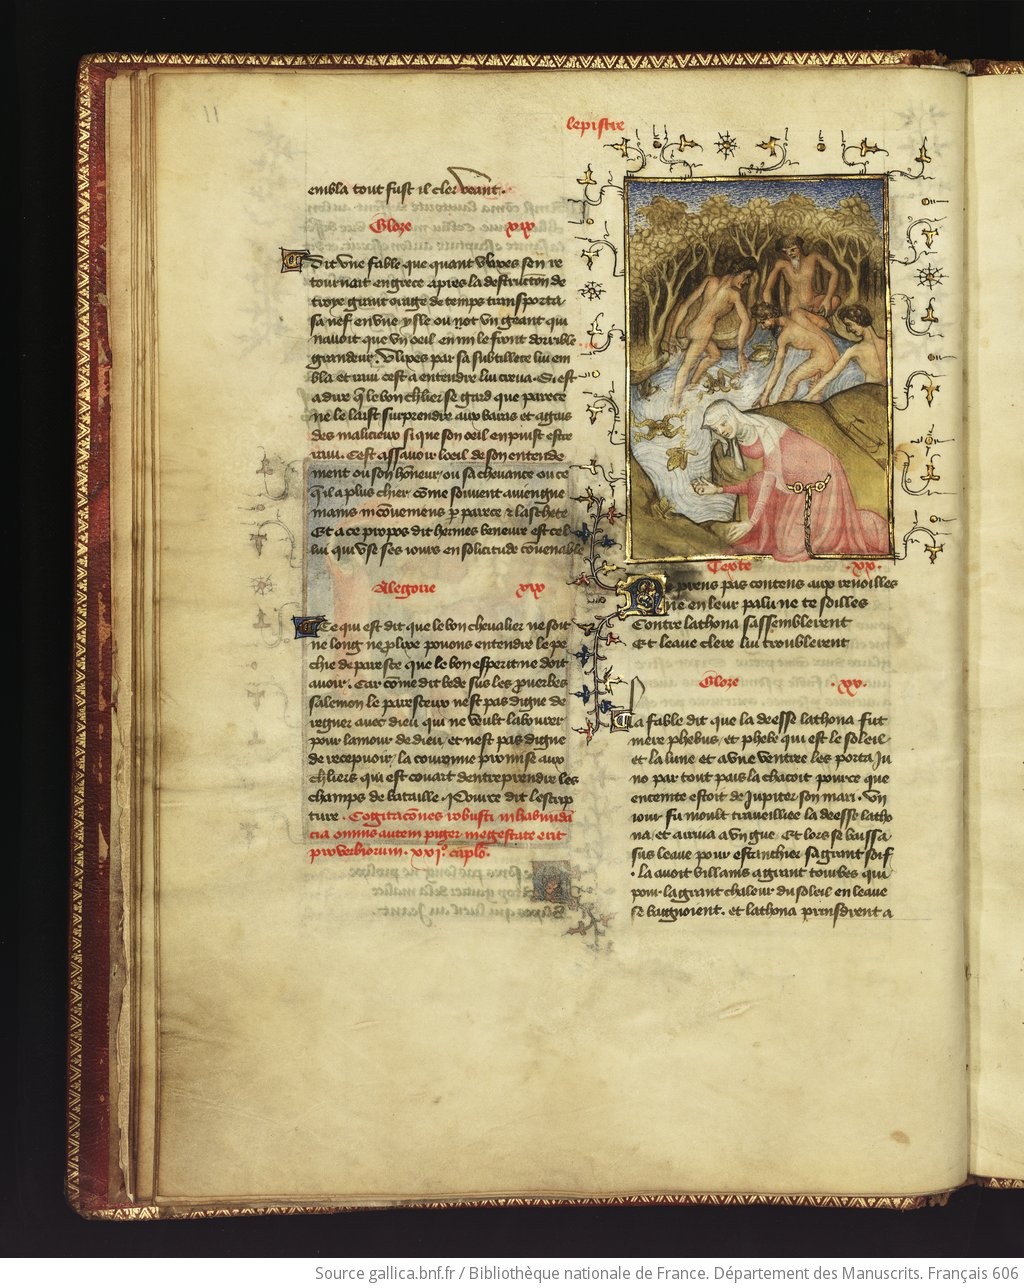 11
lepistre
embla tout fust il cler veant.
Gloze xix
Dit une fable que quant Ulixes sen re
tournait en grece apres la destruction de
troye grant orage de temps transporta
sa nef en une ysle ou not un geant qui
navoit que un oeil en mi le front dorrible
grandeur. Ulixes par sa subtillete lui em
bla et ravi cest a entendre lui creva. Si est
a dire q̃ le bon chlier se gard que parece
ne le laist surprendre aux baras et agais
des malicieux si que son oeil en puist estre
ravi. Cest assavoir loeil de son entende
ment ou son hõneur ou sa chevance ou ce
q̃ il a plus chier cõme souvent aviengne
mains incõveniens p parece & laschete
Et a ce propos dit hermes beneure est cel
lui qui use ses iours en solicitude couvenable
Alegorie xix
Ce qui est dit que le bon chevalier ne soit
ne long ne plixe pouons entendre le pe
chie de paresce que le bon esperit ne doit
avoir. Car cõme dit bede sus les pverbes
salemon le paresceux nest pas digne de
regner avec dieu qui ne veult labourer
pour lamour de dieu, et nest pas digne
de recepvoir la couronne promise aux
chliers qui est couart dentreprendre les
champs de bataille. Pource dit lescrip
ture. Cogitacõnes robusti in habunda
cia omnis autem piger in egestate erit
proverbiorum. xxi⁰. caplõ.
Texte .xx.
Ne prens pas contens aux renoilles
Ne en leur palu ne te soilles
Contre lathona sassemblerent
Et leaue clere lui troublerent
Gloze .xx.
La fable dit que la deesse lathona fut
mere phebus, et phebe qui est le soleil
et la lune et a une ventree les porta Ju
no par tout pais la chacoit pource que
encemte estoit de Jupiter son mari. Un
iour fu moult traveilliee la deesse latho
na, et arriva a un gue. Et lors se baissa
sus leaue pour estanchier sa grant soif
. la avoit villains a grant toubes qui
pour la grant chaleur du soleil en leaue
se baignoient. et lathona prinsdrent a
Source gallica.bnf.fr / Bibliothèque nationale de France. Département des Manuscrits. Français 606